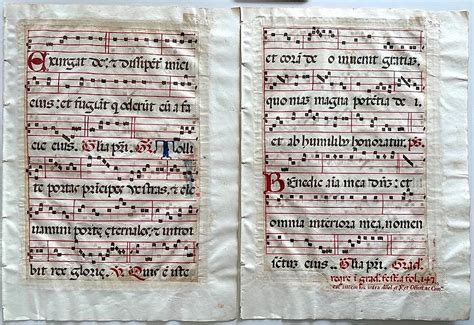 Exurgat de: & dissipēt inici
eius: et fugiāt q oderūt eū a fa
cie eius. Glia pri. Gr. Tolli
te portas príncipes vestras, & ele
uamini porte, eternales, & introi
bit rex glorie. V. Quis ē iste
et corā de o inuenit gratiā,
quoniaz magna potētia de i,
et ab humilib, honoratur. ps.
Benedic aīa mea dno: et
omnia interiora mea, nomen
sctuz eius. Glia pri. Grad.
require i grad. fest. a fol. 147.